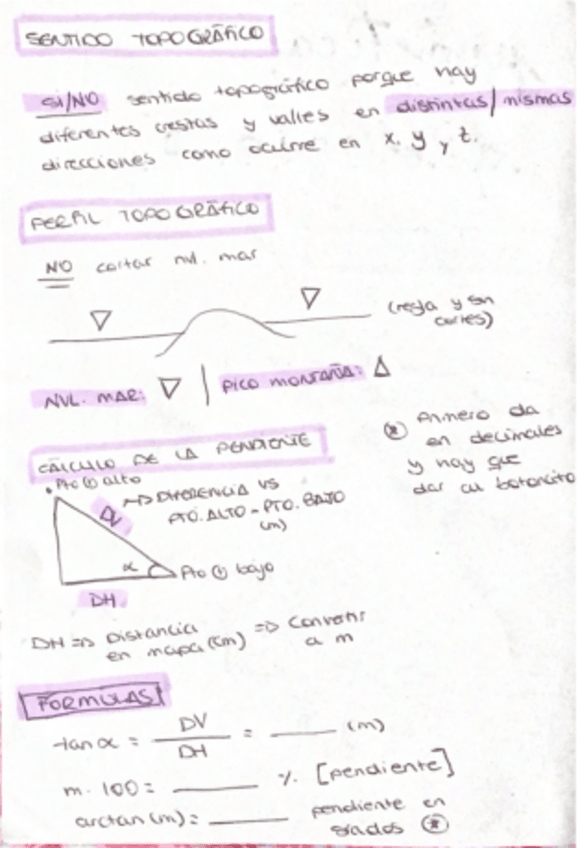 SENTIDO TOPOGRÁFICO
SI/NO sentido topográfico porque hay
diferentes crestas y valles en distintas/mismas
direcciones como ocurre en x, y, z.
PERFIL TOPOGRÁFICO
NO cortar nvl. mar
(regla y sin
cortes)
NVL. MAR: ▽ | PICO MONTAÑA: △
CÁLCULO DE LA PENDIENTE
Pto ① alto
DV => DIFERENCIA VS
PTO. ALTO - PTO. BAJO
(m)
α
Pto ① bajo
DH
* Primero da
en decimales
y hay que
dar al botoncito
DH => Distancia
en mapa (cm) => Convertir
a m
FÓRMULAS
tan α = DV / DH = ____ (m)
m · 100 = ____ % [pendiente]
arctan (m) = ____ pendiente en
grados *